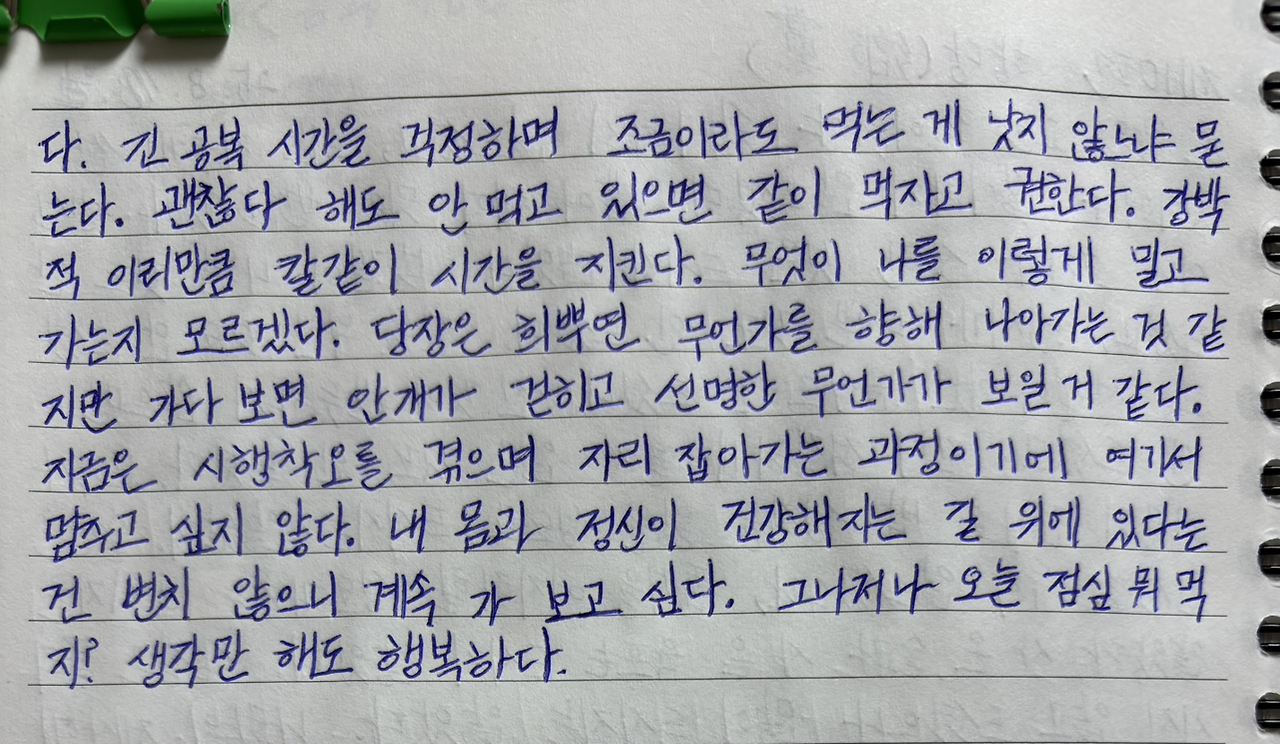 다. 긴 공복 시간을 걱정하며 조금이라도 먹는 게 낫지 않느냐 묻
는다. 괜찮다 해도 안 먹고 있으면 같이 먹자고 권한다. 강박
적 이리만큼 칼같이 시간을 지킨다. 무엇이 나를 이렇게 밀고
가는지 모르겠다. 당장은 희뿌연 무언가를 향해 나아가는 것 같
지만 가다 보면 안개가 걷히고 선명한 무언가가 보일 거 같다.
지금은 시행착오를 겪으며 자리 잡아가는 과정이기에 여기서
멈추고 싶지 않다. 내 몸과 정신이 건강해지는 길 위에 있다는
건 변치 않으니 계속 가 보고 싶다. 그나저나 오늘 점심 뭐 먹
지? 생각만 해도 행복하다.